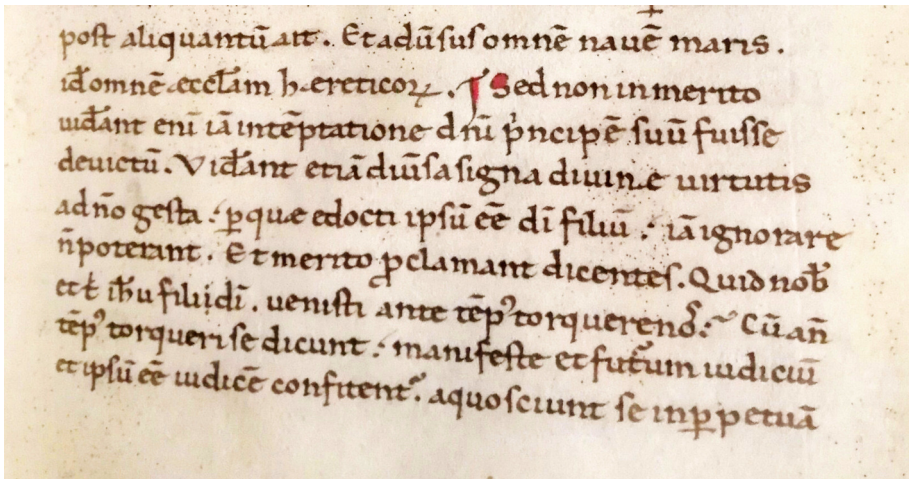 post aliquantū ait . Et adūsus omnē navē maris .
id̄ omnē ęccl̄am hęreticoꝝ . Sed non inmerito
uid̄ant eni iā in tēptatione dn̄i p̍ncipē suū fuisse
deuictū . Vid̄ant etiā diūsa signa diuinę uirtutis
ad n̄o gesta : ꝑ quæ edocti ipsū eē di filiū : iā ignorare
n̄ poterant . Et merito ꝓclamant dicentes . Quid nob̄
et t̄ ih̄u fili di . uenisti ante tēpꝰ torquere nos : Cū an̄
tēpꝰ torqueri se dicunt : manifeste et futuꝝum iudiciū
et ipsū eē iudicē confitent᷑ . a quo sciunt se in ꝑpetuā